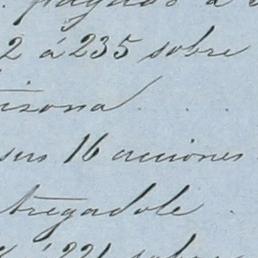 pagado á
2 á 235 sobre
isona
sus 16 acciones
tregadole
á 221 sobre